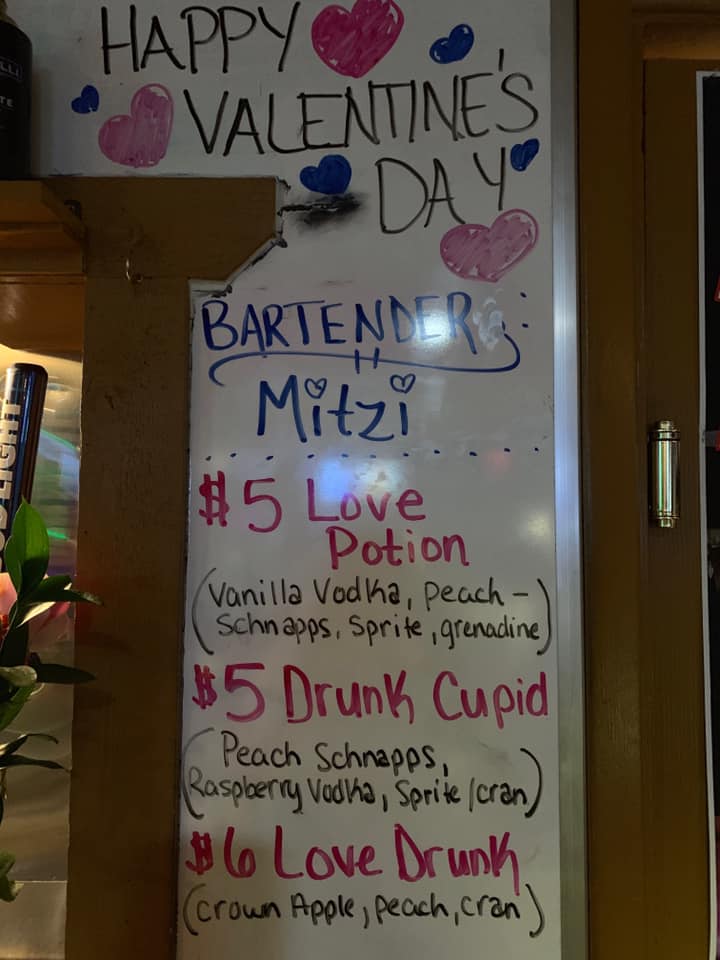 HAPPY
VALENTINE'S
DAY
BARTENDER:
Mitzi
$5 Love
Potion
(Vanilla Vodka, peach-
Schnapps, Sprite, grenadine)
$5 Drunk Cupid
(Peach Schnapps,
Raspberry Vodka, Sprite/cran)
$6 Love Drunk
(crown Apple, peach, cran)
LIGHT